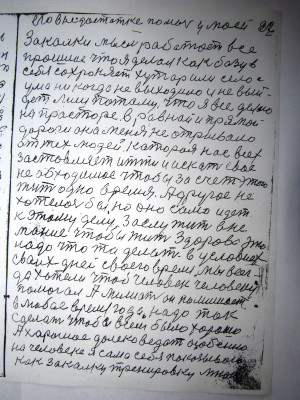 Но в недостатке помочь у моей 22
Закалки мысл работает все
прошлое что я делал как базу в
себя сохраняет хутарим село с
ума никогда не выходило и не вый-
дет
потому что я все делаю
на просторе в равной и прямой
дороги она меня не отрывало
от тех людей, которая нас всех
заставляет итти и искать свое
не обходимое чтобы за счет этого
жит одно время. А другое не
хотелося бы, но оно само идет
к этому делу, заслужит в не
мание чтобы жит здорово это
надо что та делать в условиях
своих дней своего время, мы все
да хотели чтоб человек человеку
помогал. А
он
в любое время года, надо так
сделать чтоб всем было хорошо
А хорошое далеко ведат особенно
на человеке я сам себя показываю
как закалку тренировку